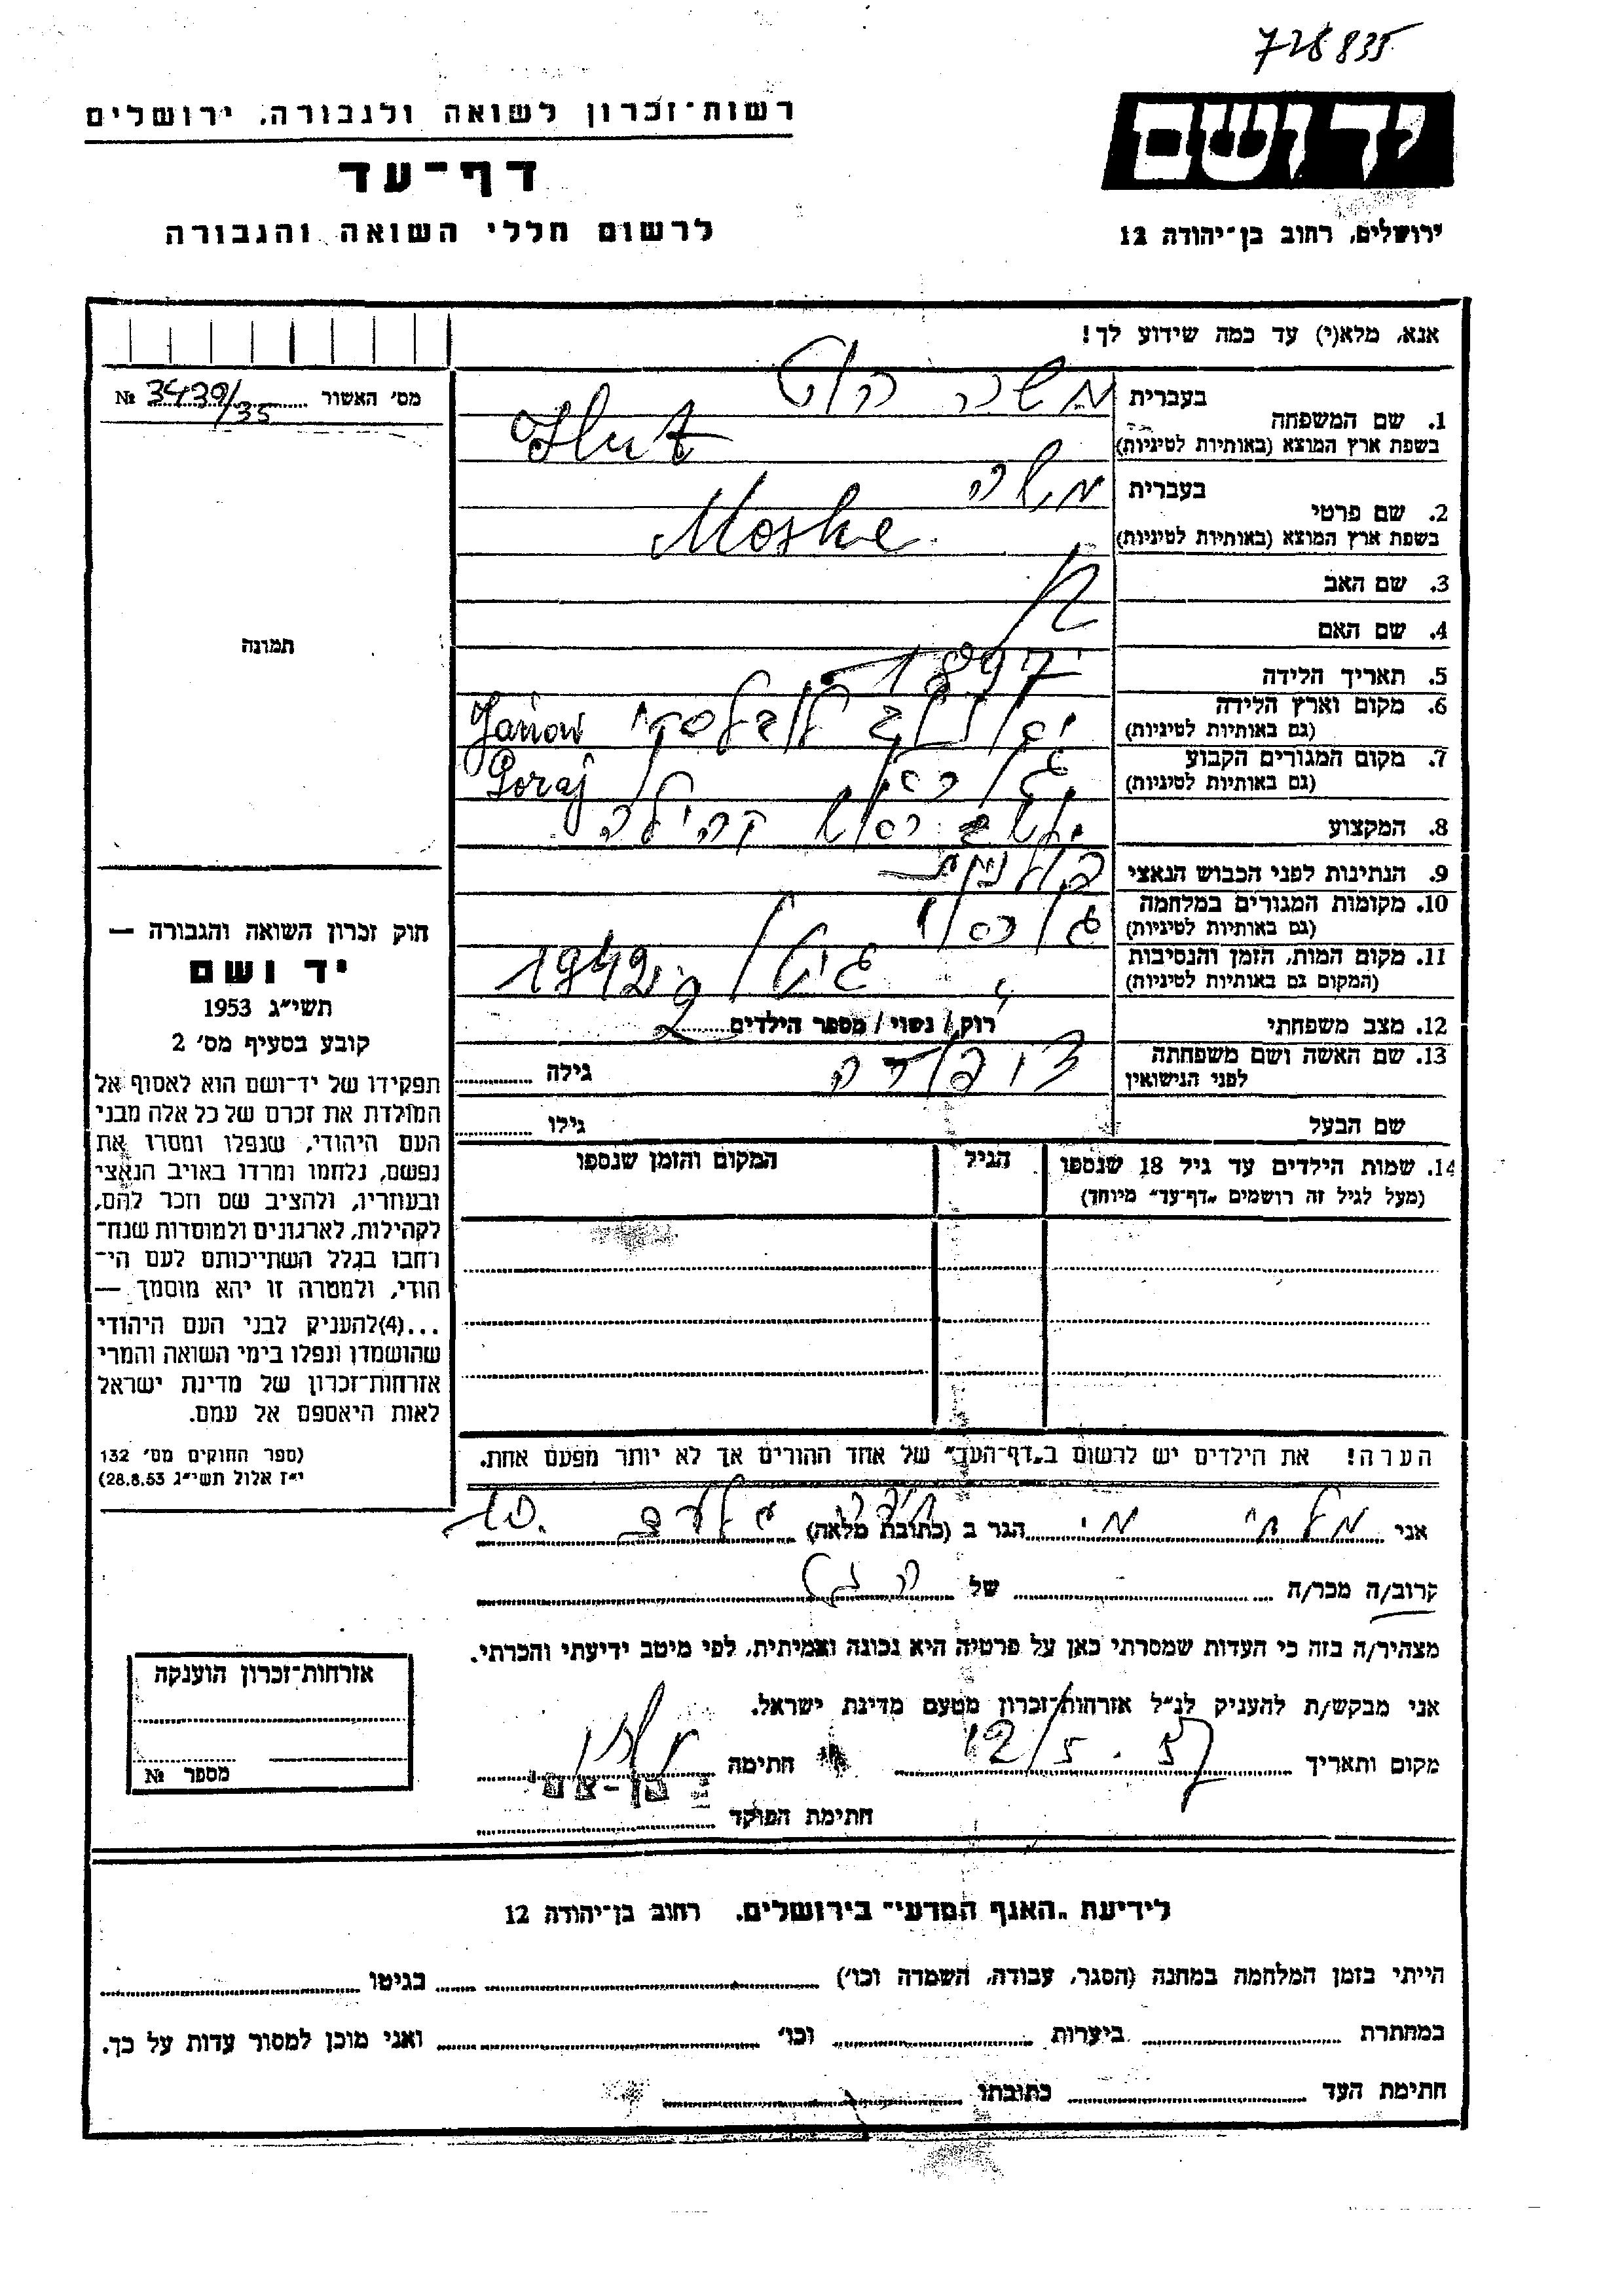 728835
רשות־זכרון לשואה ולגבורה, ירושלים
דף־עד
לרשום חללי השואה והגבורה
יד ושם
ירושלים, רחוב בן־יהודה 12
אנא, מלא(י) עד כמה שידוע לך!
מס׳ האשור № 3439/35
1. שם המשפחה
בעברית משה הוט
בשפת ארץ המוצא (באותיות לטיניות) Hut
2. שם פרטי
בעברית משה
בשפת ארץ המוצא (באותיות לטיניות) Moshe
3. שם האב
4. שם האם
5. תאריך הלידה 1897
6. מקום וארץ הלידה
(גם באותיות לטיניות) יאנוב לובלסקי Janow
7. מקום המגורים הקבוע
(גם באותיות לטיניות) Goraj
8. המקצוע יושב ראש קהילה
9. הנתינות לפני הכבוש הנאצי פולנית
10. מקומות המגורים במלחמה
(גם באותיות לטיניות)
11. מקום המות, הזמן והנסיבות
(המקום גם באותיות לטיניות) 1942
12. מצב משפחתי רוק / נשוי / מספר הילדים 2
13. שם האשה ושם משפחתה
לפני הנישואין ציפורה גילה
שם הבעל גילו
14. שמות הילדים עד גיל 18 שנספו הגיל המקום והזמן שנספו
(מעל לגיל זה רושמים „דף־עד” מיוחד)
הערה! את הילדים יש לרשום ב„דף־העד” של אחד ההורים אך לא יותר מפעם אחת.
תמונה
חוק זכרון השואה והגבורה —
יד ושם
תשי״ג 1953
קובע בסעיף מס׳ 2
תפקידו של יד־ושם הוא לאסוף אל
המולדת את זכרם של כל אלה מבני
העם היהודי, שנפלו ומסרו את
נפשם, נלחמו ומרדו באויב הנאצי
ובעוזריו, ולהציב שם וזכר להם,
לקהילות, לארגונים ולמוסדות שנח־
רבו בגלל השתייכותם לעם הי־
הודי, ולמטרה זו יהא מוסמך —
...(4)להעניק לבני העם היהודי
שהושמדו ונפלו בימי השואה והמרי
אזרחות־זכרון של מדינת ישראל
לאות היאספם אל עמם.
(ספר החוקים מס׳ 132
י״ז אלול תשי״ג 28.8.53)
אני הגר ב (כתובת מלאה)
קרוב/ה מכר/ה של
מצהיר/ה בזה כי העדות שמסרתי כאן על פרטיה היא נכונה ואמיתית, לפי מיטב ידיעתי והכרתי.
אני מבקש/ת להעניק לנ״ל אזרחות־זכרון מטעם מדינת ישראל.
מקום ותאריך 12/5.57 חתימה
חתימת הפוקד
אזרחות־זכרון הוענקה
מספר №
לידיעת „האגף המדעי” בירושלים, רחוב בן־יהודה 12
הייתי בזמן המלחמה במחנה (הסגר, עבודה, השמדה וכו׳) בגיטו
במחתרת ביערות וכו׳ ואני מוכן למסור עדות על כך.
חתימת העד כתובתו